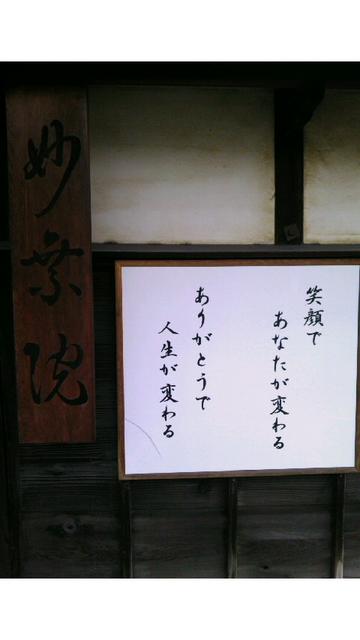 笑顔で
あなたが変わる
ありがとうで
人生が変わる
妙葉院